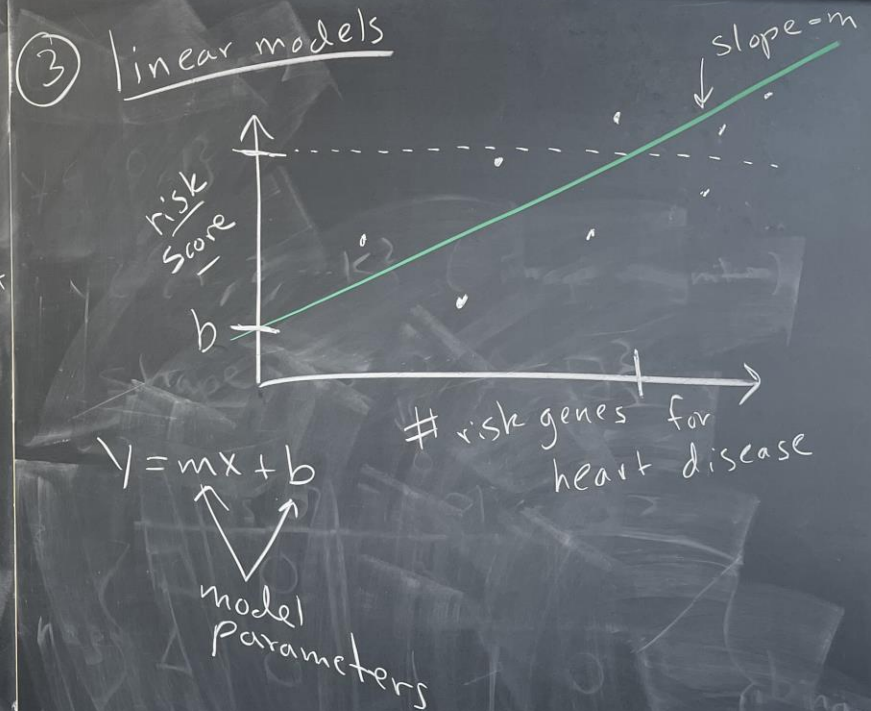 3 linear models
slope=m
risk
score
b
# risk genes for
heart disease
y = mx + b
model
parameters